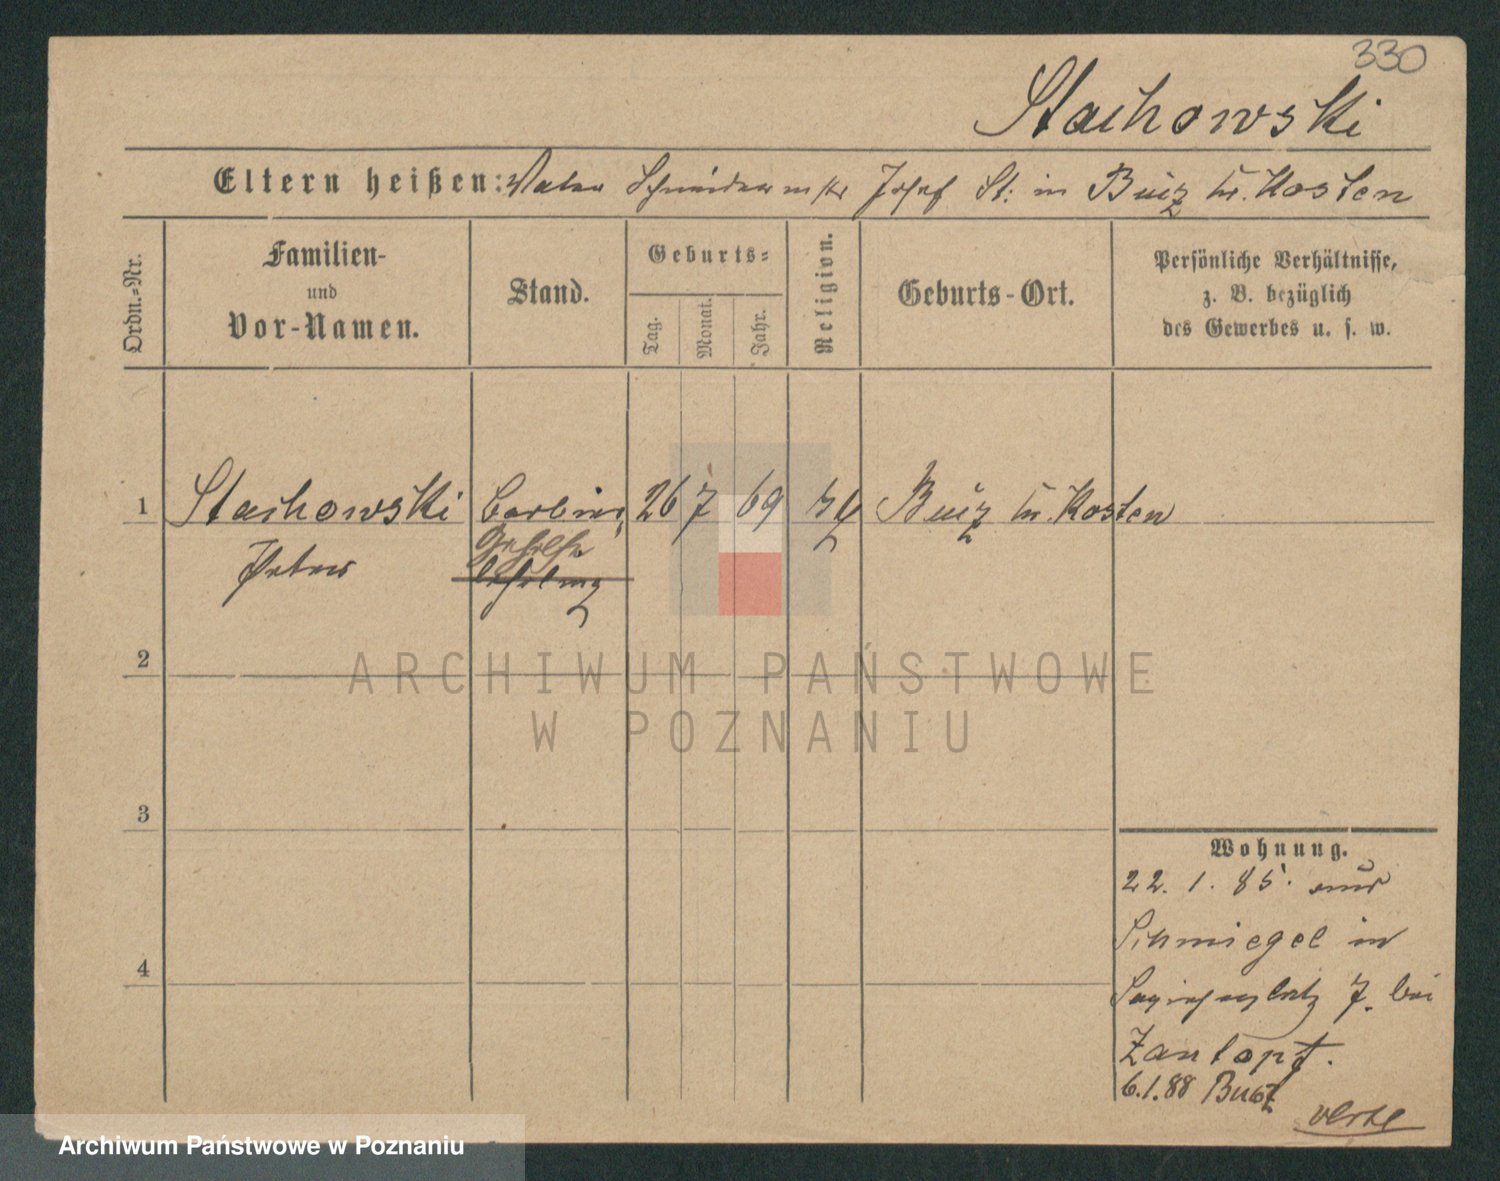 330
Stachowski
Eltern heißen: Vater Schneidermstr Josef St: in Bucz Kr. Kosten
Ordn.-Nr.
Familien-
und
Vor-Namen.
Stand.
Geburts-
Tag.
Monat.
Jahr.
Religion.
Geburts-Ort.
Persönliche Verhältnisse,
z. B. bezüglich
des Gewerbes u. s. w.
1 Stachowski Barbier 26 7 69 Bucz Kr. Kosten
Gehilfe
Peter
Lehrling
ARCHIWUM PAŃSTWOWE
W POZNANIU
2
3
4
Wohnung.
22. 1. 85. aus
Schmiegel in
Sapiehaplatz 7. bei
Zantopf.
6.1.88 Bucz
Archiwum Państwowe w Poznaniu